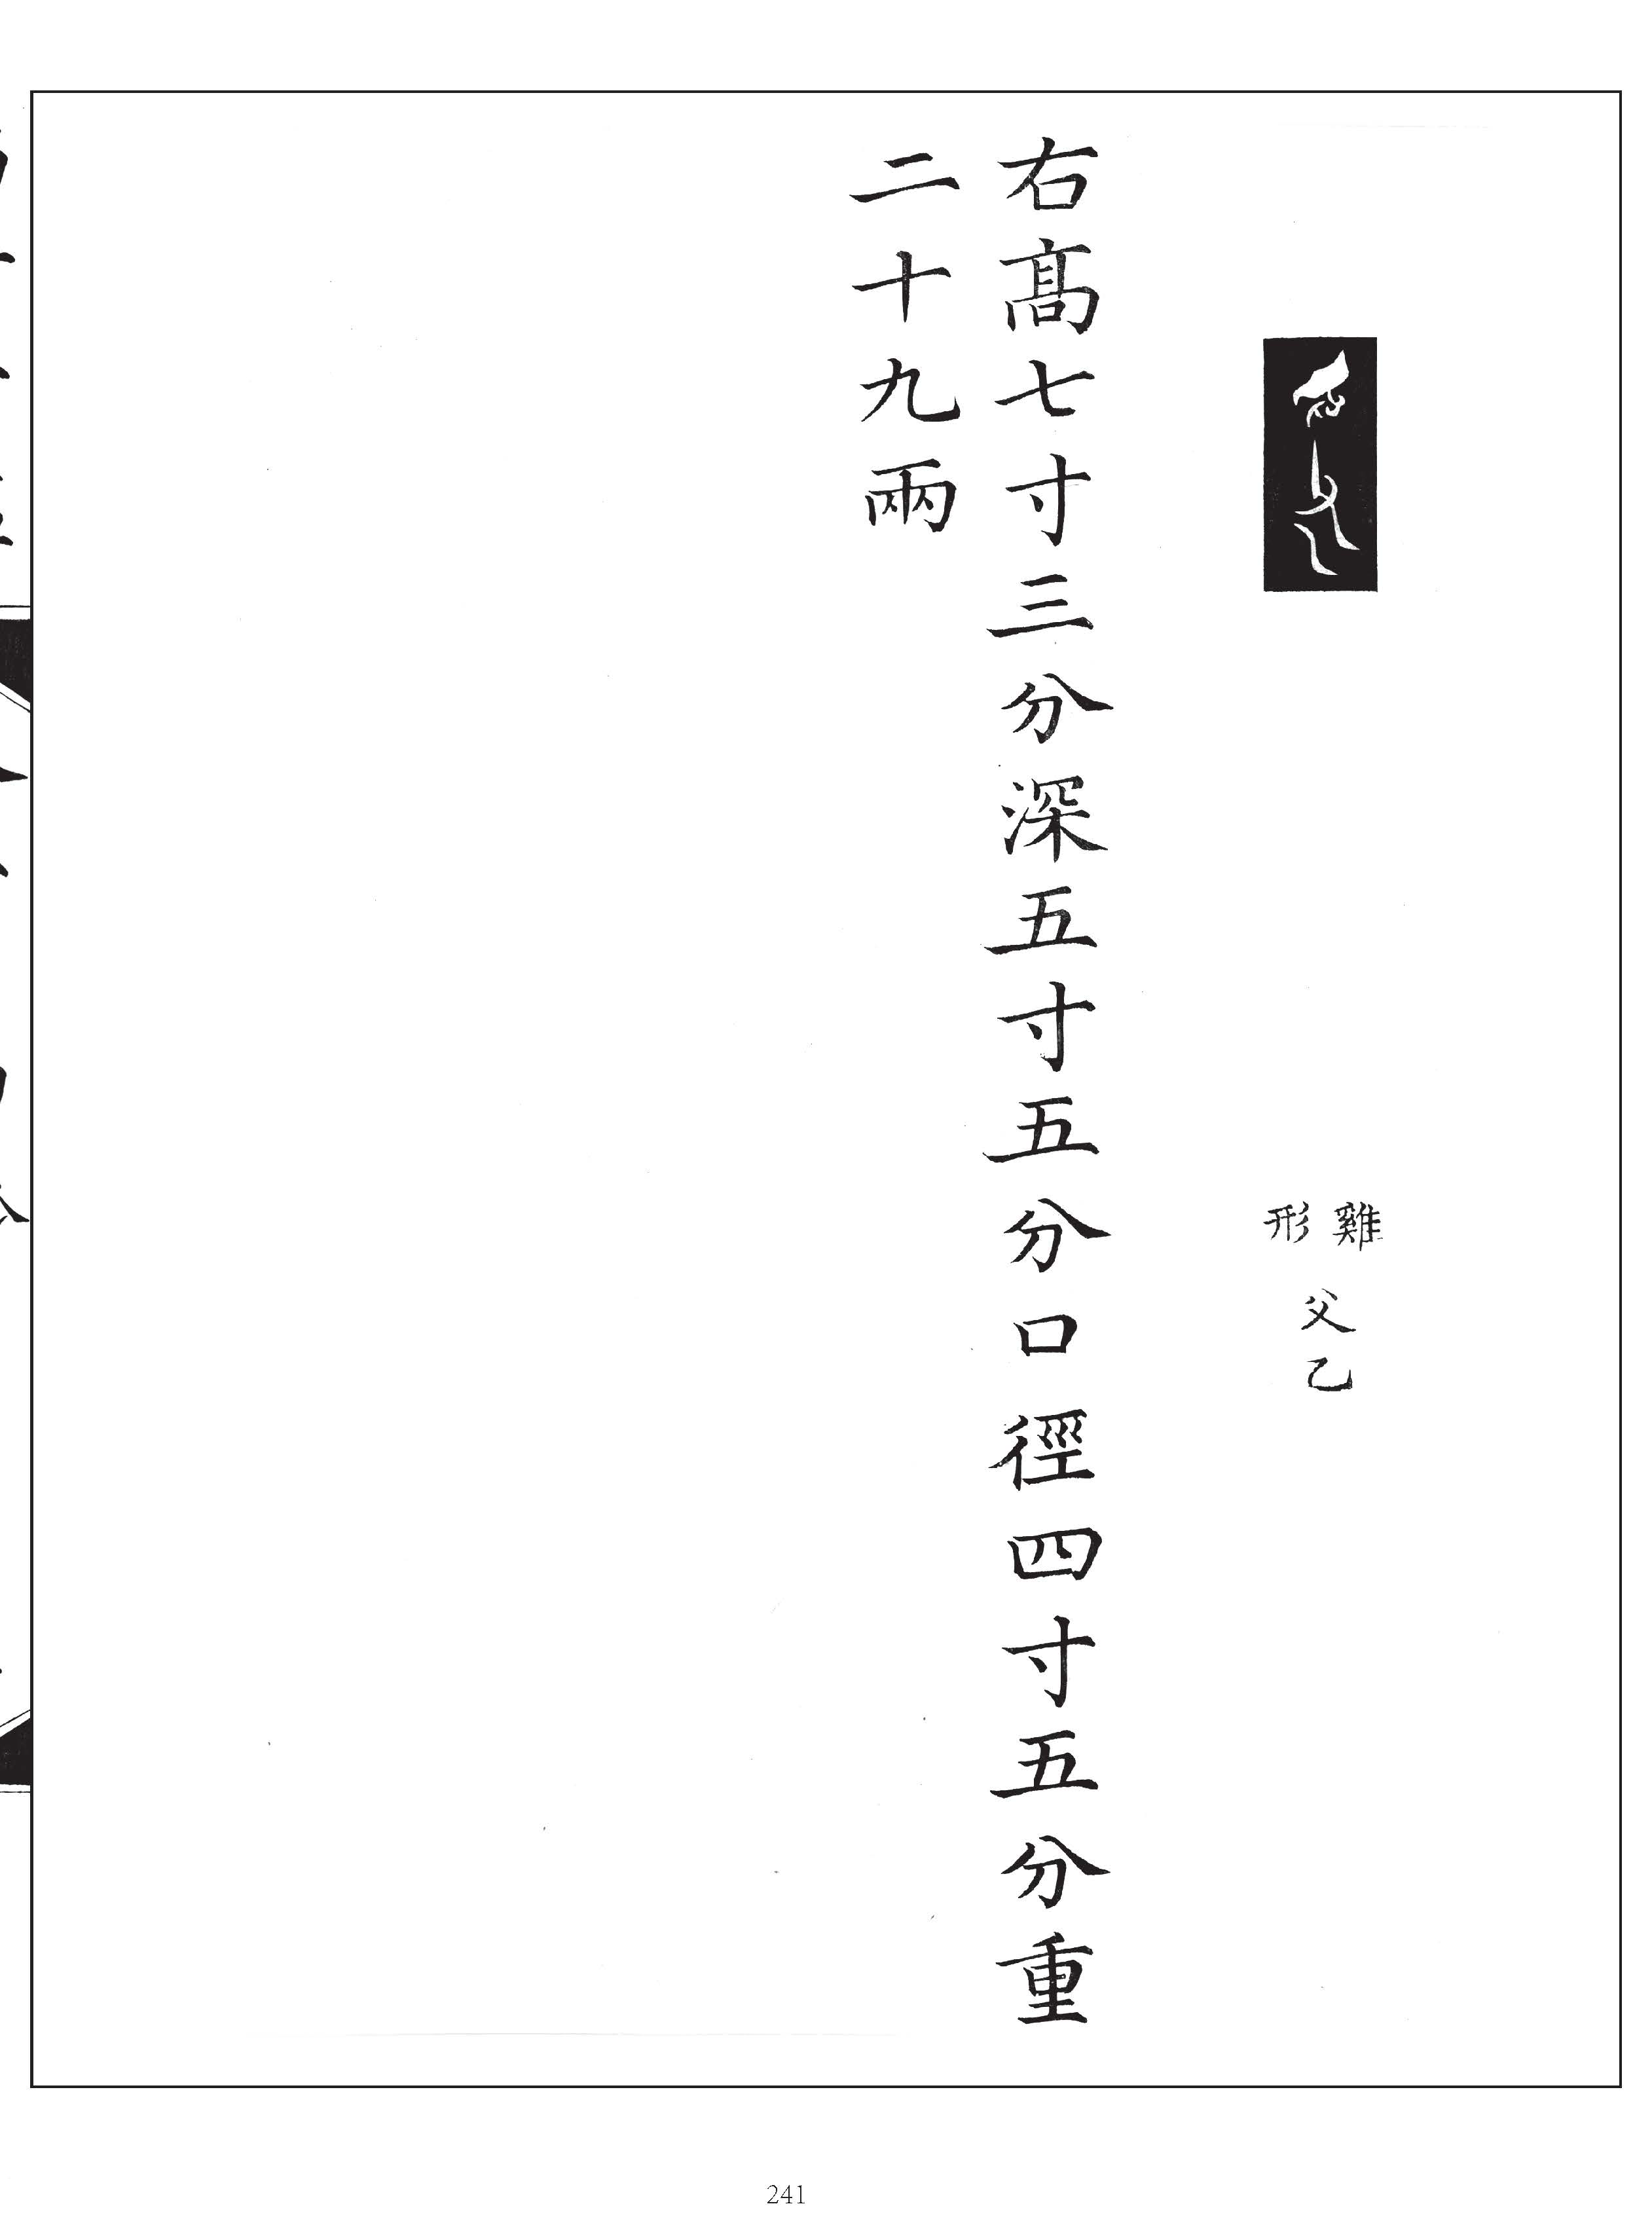 雞形父乙
右高七寸三分深五寸五分口徑四寸五分重
二十九兩
241